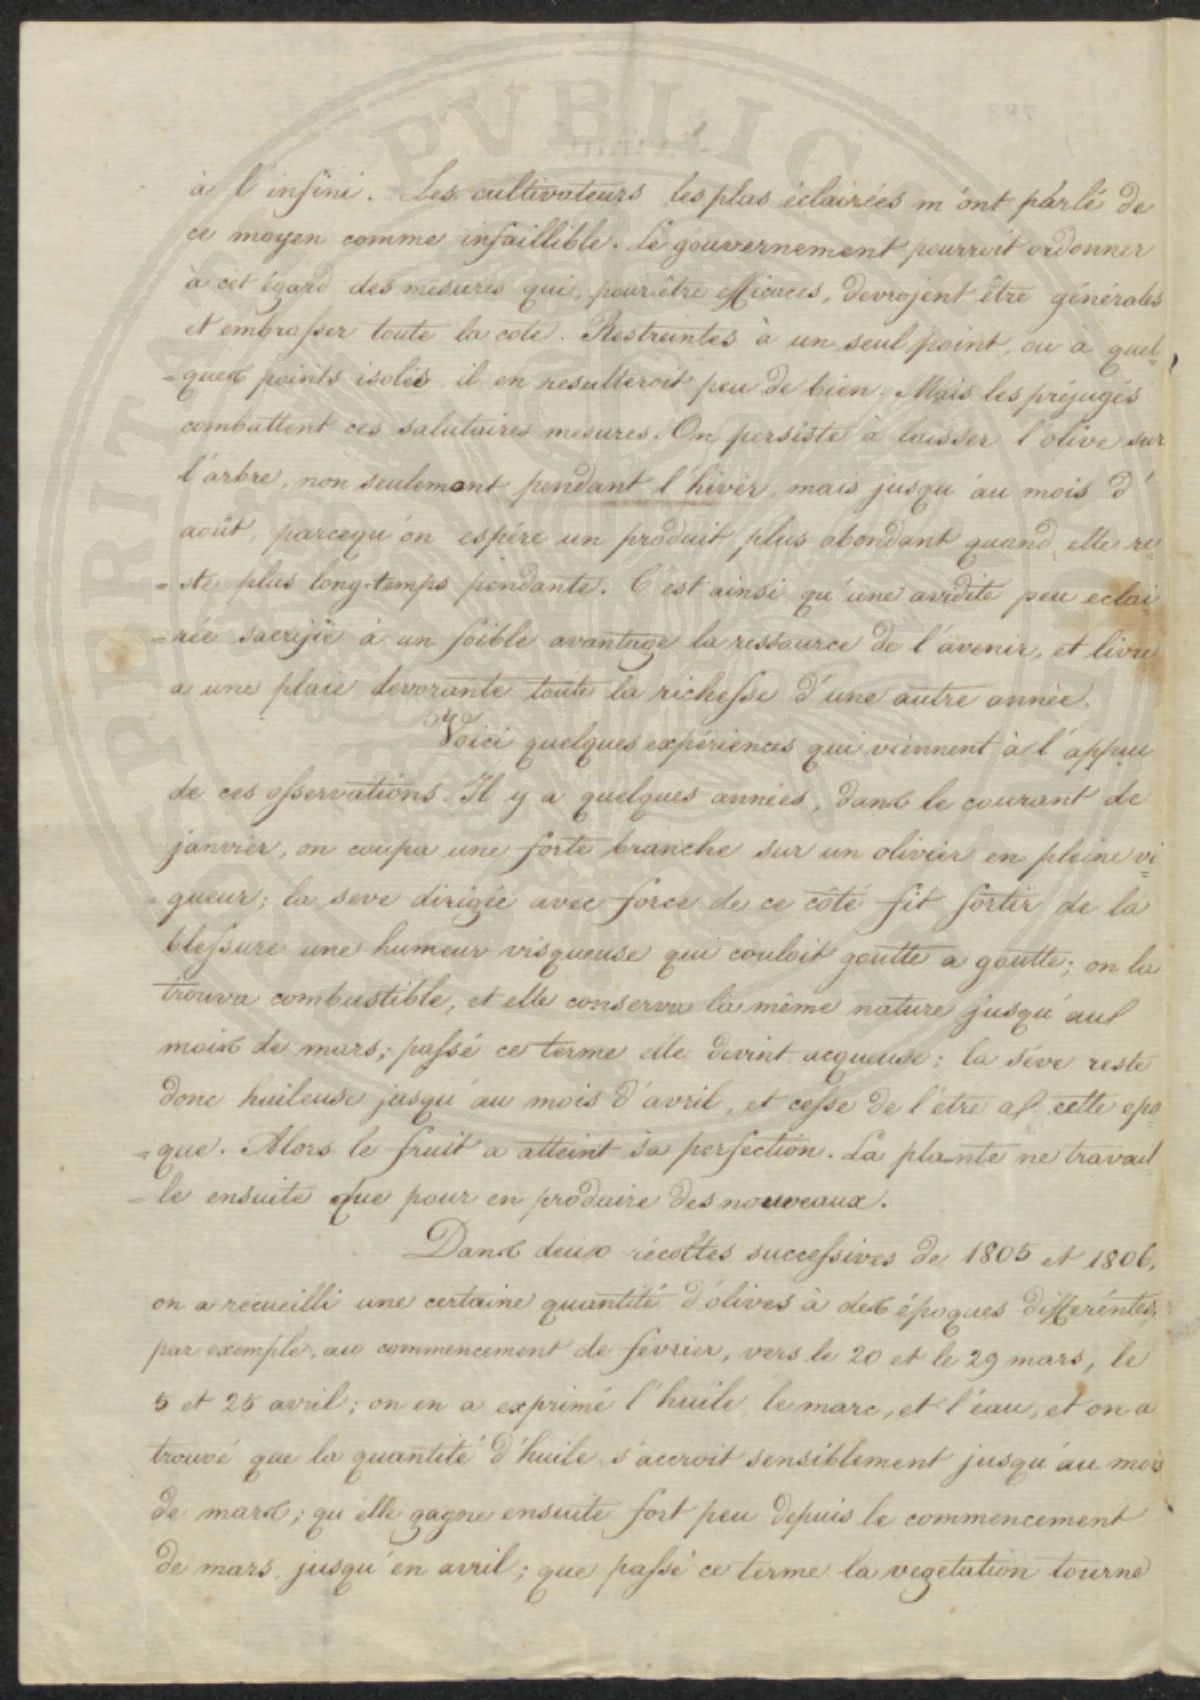 à l'infini. Les cultivateurs les plus éclairées m'ont parlé de
ce moyen comme infaillible. Le gouvernement pourroit ordonner
à cet égard des mesures qui, pour être efficaces, devrojent être générales
et embrasser toute la cote. Restreintes à un seul point, ou à quel=
=ques points isolés il en resulteroit peu de bien. Mais les préjugés
combattent ces salutaires mesures. On persiste à laisser l'olive sur
l'arbre, non seulement pendant l'hiver, mais jusqu'au mois d'
août, parcequ'on espére un produit plus abondant quand elle re=
=ste plus long-temps pendante. C'est ainsi qu'une avidité peu eclai=
=rée sacrifie à un foible avantage la ressource de l'avenir, et livre
a une plaie devorante toute la richesse d'une autre année.
Voici quelques expériences qui viénnent à l'appui
de ces osservations. Il y a quelques années, dans le courant de
janvier, on coupa une forte branche sur un olivier en pleine vi=
gueur; la seve dirigée avec force de ce côté fit sortir de la
blessure une humeur visqueuse qui couloit goutte a goutte; on la
trouva combustible, et elle conserva la même nature jusqu'au
mois de mars; passé ce terme elle devint acqueuse; la séve reste
donc huileuse jusqu'au mois d'avril, et cesse de l'etre a cette epo=
=que. Alors le fruit a atteint sa perfection. La plante ne travail=
=le ensuite que pour en produire des nouveaux.
Dans deux récoltes successives de 1805 et 1806,
on a recueilli une certaine quantité d'olives à des époques différéntes,
par exemple, au commencement de février, vers le 20 et le 29 mars, le
5 et 25 avril; on en a exprimé l'huile, le marc, et l'éau, et on a
trouvé que la quantité d'huile s'accroit sensiblement jusqu'au mois
de mars; qu'elle gagne ensuite fort peu depuis le commencement
de mars jusqu'en avril; que passé ce terme la vegetation tourne